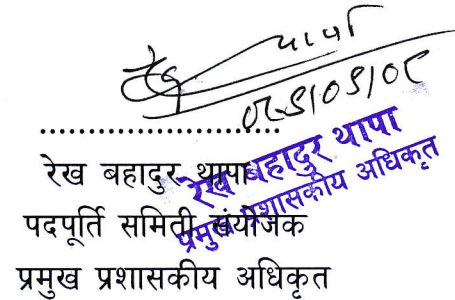 थापा
रेख बहादुर थापा
प्रमुख प्रशासकीय अधिकृत
रेख बहादुर थापा
पदपूर्ति समिती संयोजक
प्रमुख प्रशासकीय अधिकृत